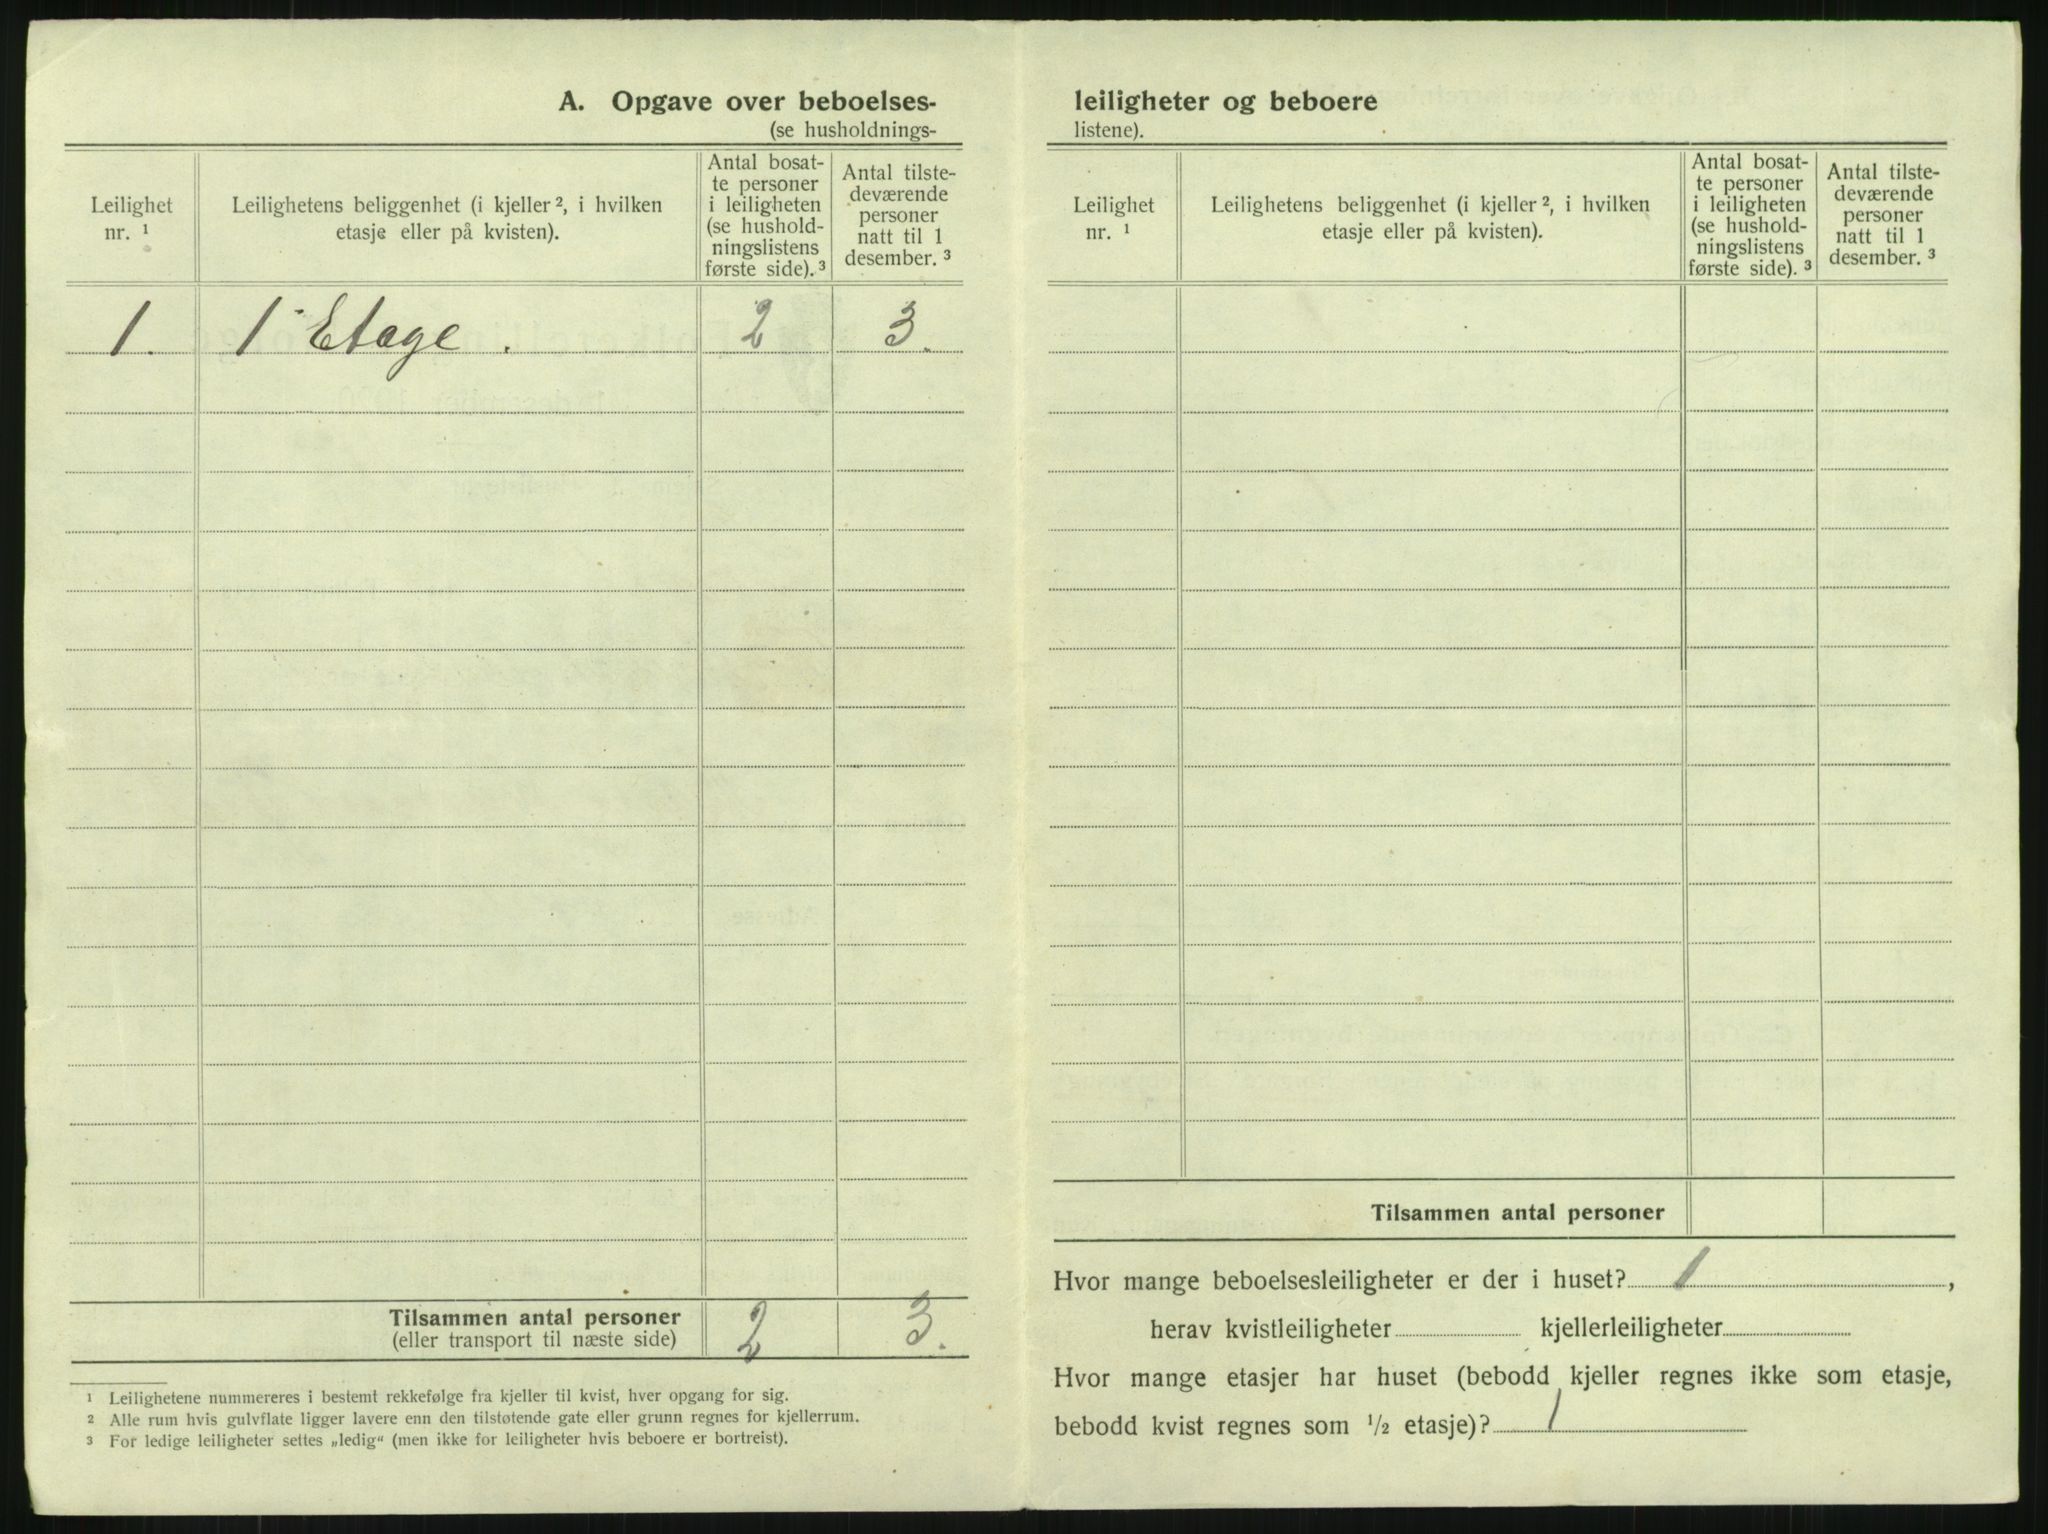 A. Opgave over beboelses-
(se husholdnings-
Leilighet
nr. ¹
Leilighetens beliggenhet (i kjeller ², i hvilken
etasje eller på kvisten).
Antal bosat-
te personer
i leiligheten
(se hushold-
ningslistens
første side). ³
Antal tilste-
deværende
personer
natt til 1
desember. ³
1. 1 Etage. 2 3.
Tilsammen antal personer
(eller transport til næste side)
2 3.
¹ Leilighetene nummereres i bestemt rekkefølge fra kjeller til kvist, hver opgang for sig.
² Alle rum hvis gulvflate ligger lavere enn den tilstøtende gate eller grunn regnes for kjellerrum.
³ For ledige leiligheter settes „ledig“ (men ikke for leiligheter hvis beboere er bortreist).
leiligheter og beboere
listene).
Leilighet
nr. ¹
Leilighetens beliggenhet (i kjeller ², i hvilken
etasje eller på kvisten).
Antal bosat-
te personer
i leiligheten
(se hushold-
ningslistens
første side). ³
Antal tilste-
deværende
personer
natt til 1
desember. ³
Tilsammen antal personer
Hvor mange beboelsesleiligheter er der i huset? 1,
herav kvistleiligheter kjellerleiligheter
Hvor mange etasjer har huset (bebodd kjeller regnes ikke som etasje,
bebodd kvist regnes som ½ etasje)? 1